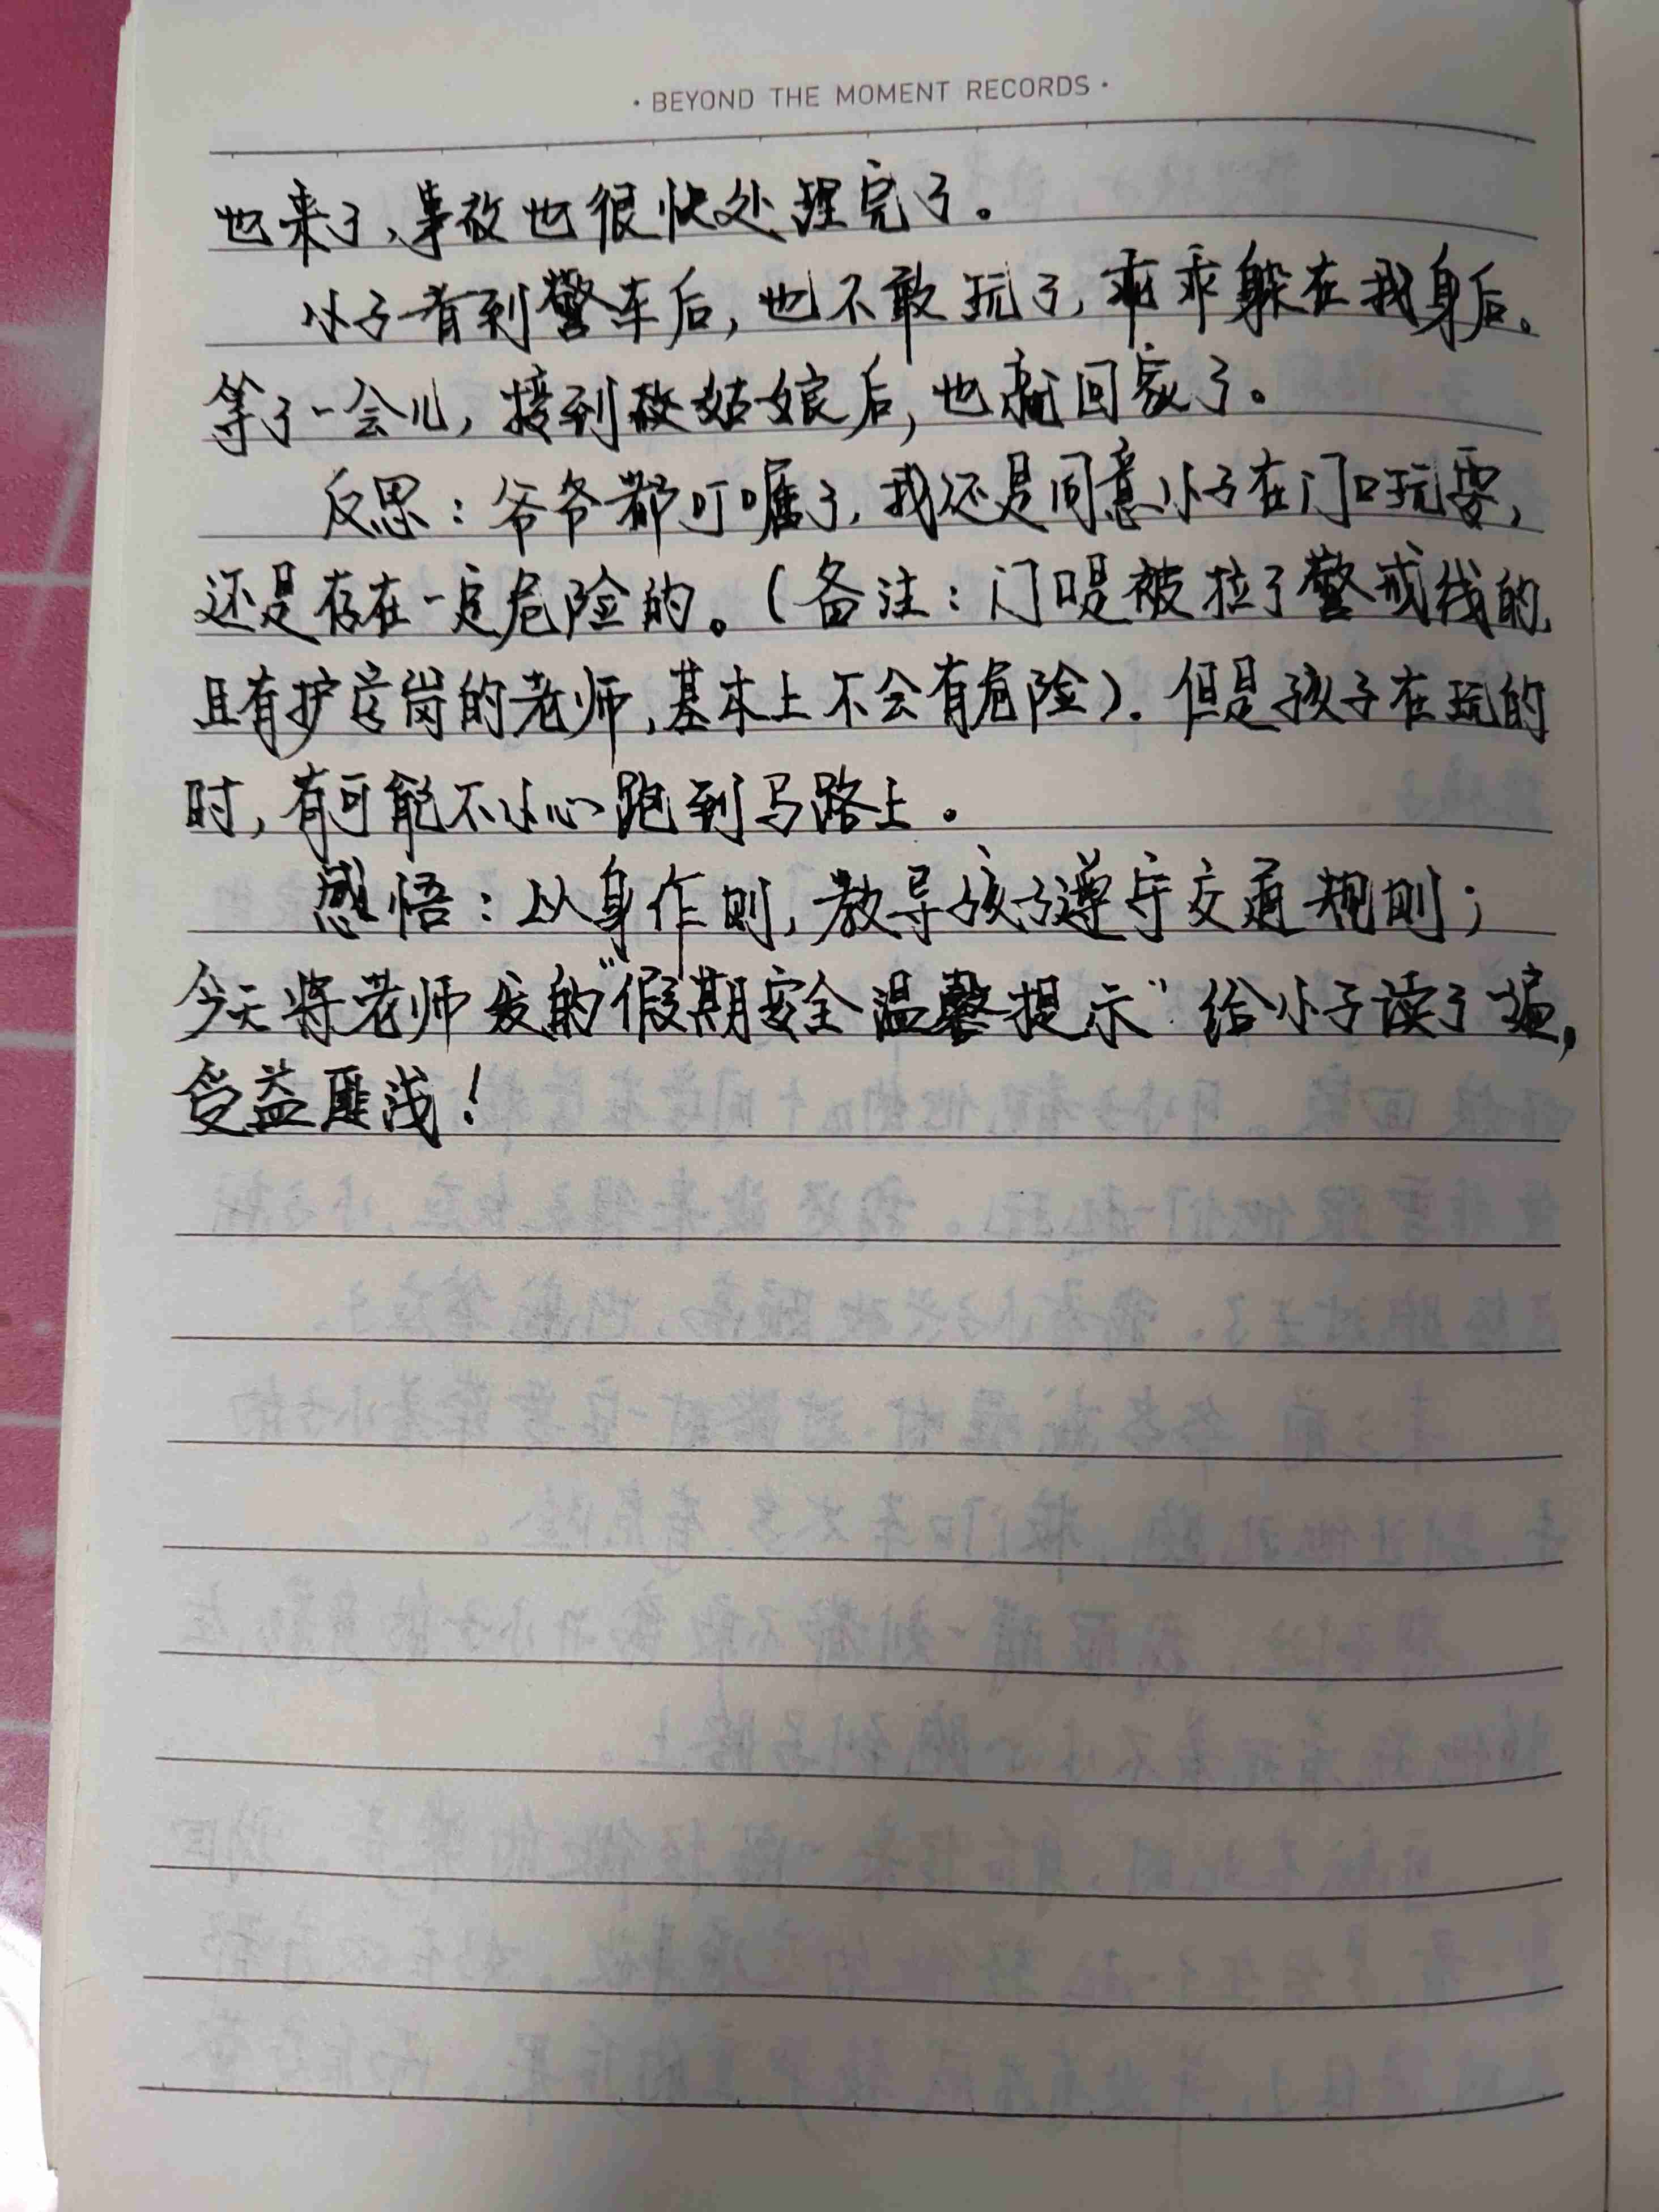 · BEYOND THE MOMENT RECORDS ·
也来了，事故也很快处理完了。
小子看到警车后，也不敢玩了，乖乖躲在我身后。
等了一会儿，接到放姑娘后，也就回家了。
反思：爷爷都叮嘱了，我还是同意小子在门口玩耍，
还是存在一定危险的。（备注：门口是被拉了警戒线的，
且有护学岗的老师，基本上不会有危险）．但是孩子在玩的
时，有可能不小心跑到马路上。
感悟：以身作则，教导孩子遵守交通规则；
今天将老师发的“假期安全温馨提示”给小子读了一遍，
受益匪浅！